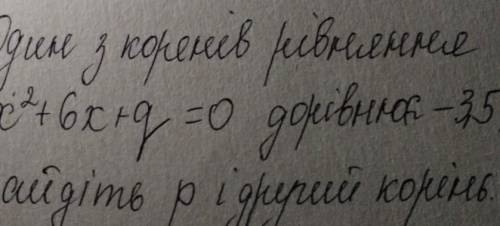 Один з коренів рівняння
x²+6x+q=0 дорівнює -3,5
айдіть p і другий корінь.